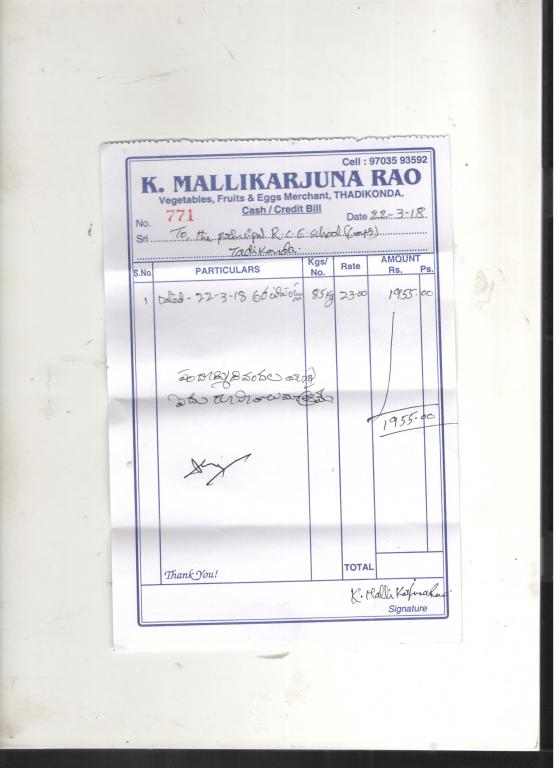 Cell : 97035 93592
K. MALLIKARJUNA RAO
Vegetables, Fruits & Eggs Merchant, THADIKONDA.
Cash / Credit Bill
No. 771 Date 22-3-18
Sri To the principal R.C.E School (Boys)
Tadikonda.
S.No. PARTICULARS Kgs/No. Rate AMOUNT Rs. Ps.
1 Dated - 22-3-18 85 kg 23.00 1955.00
1955.00
Thank You! TOTAL
K. Mallikarjunarao
Signature